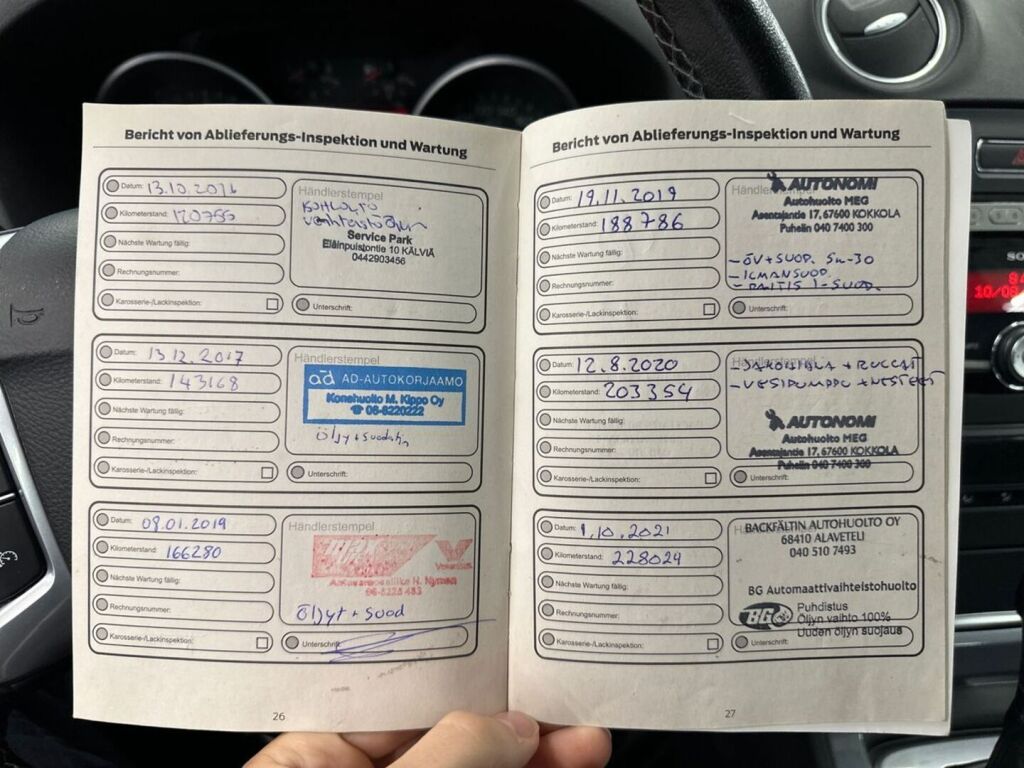 Bericht von Ablieferungs-Inspektion und Wartung
Datum: 13.10.2016
Kilometerstand: 120755
Nächste Wartung fällig:
Rechnungsnummer:
Karosserie-/Lackinspektion:
Händlerstempel
Service Park
Eläinpuistontie 10 KÄLVIÄ
0442903456
Unterschrift:
Datum: 13.12.2017
Kilometerstand: 143168
Nächste Wartung fällig:
Rechnungsnummer:
Karosserie-/Lackinspektion:
Händlerstempel
ad AD-AUTOKORJAAMO
Konehuolto M. Kippo Oy
☎ 06-8220222
Unterschrift:
Datum: 08.01.2019
Kilometerstand: 166280
Nächste Wartung fällig:
Rechnungsnummer:
Karosserie-/Lackinspektion:
Händlerstempel
N. Nyman
Öljyt + suod
Unterschrift:
26
Bericht von Ablieferungs-Inspektion und Wartung
Datum: 19.11.2019
Kilometerstand: 188786
Nächste Wartung fällig:
Rechnungsnummer:
Karosserie-/Lackinspektion:
AUTONOMI
Autohuolto MEG
Asentajantie 17, 67600 KOKKOLA
Puhelin 040 7400 300
- ÖV+SUOD. 5W-30
- ILMANSUOD.
- RAITIS I-SUOD.
Unterschrift:
Datum: 12.8.2020
Kilometerstand: 203354
Nächste Wartung fällig:
Rechnungsnummer:
Karosserie-/Lackinspektion:
Händlerstempel
- JAKOHIHNA + RULLAT
- VESIPUMPPU + NESTEET
AUTONOMI
Autohuolto MEG
Asentajantie 17, 67600 KOKKOLA
Puhelin 040 7400 300
Unterschrift:
Datum: 1.10.2021
Kilometerstand: 228024
Nächste Wartung fällig:
Rechnungsnummer:
Karosserie-/Lackinspektion:
BACKFÄLTIN AUTOHUOLTO OY
68410 ALAVETELI
040 510 7493
BG Automaattivaihteistohuolto
BG
Puhdistus
Öljyn vaihto 100%
Uuden öljyn suojaus
Unterschrift:
27